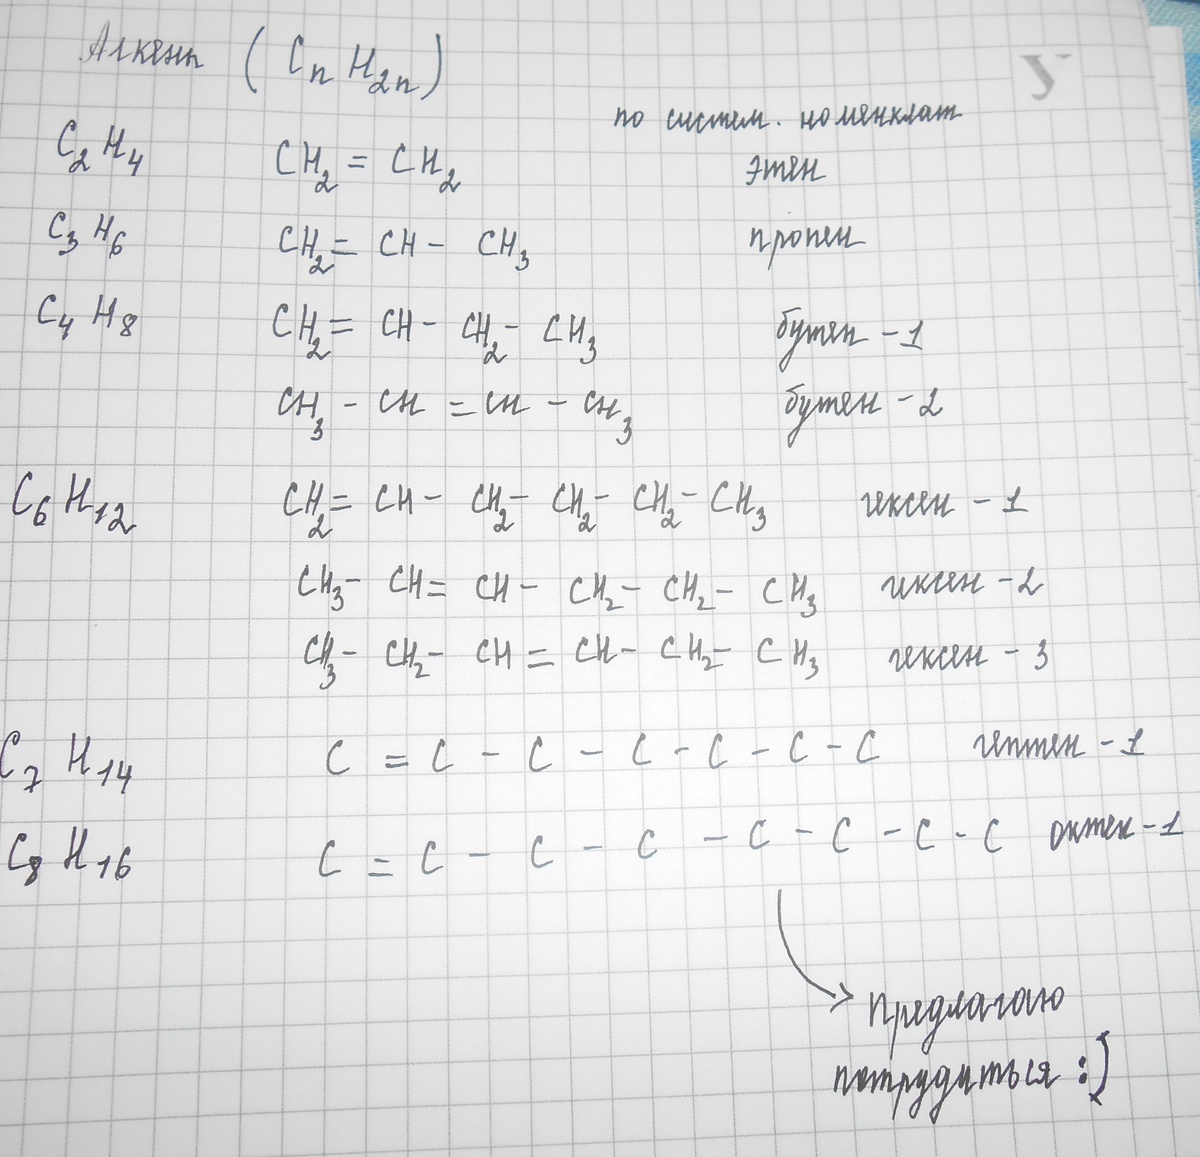 Алкены (CnH2n)
У
по систем. номенклат
C2H4 CH2 = CH2 этен
C3H6 CH2 = CH - CH3 пропен
C4H8 CH2 = CH - CH2 - CH3 бутен - 1
CH3 - CH = CH - CH3 бутен - 2
C6H12 CH2 = CH - CH2 - CH2 - CH2 - CH3 гексен - 1
CH3 - CH = CH - CH2 - CH2 - CH3 гексен - 2
CH3 - CH2 - CH = CH - CH2 - CH3 гексен - 3
C7H14 C = C - C - C - C - C - C гептен - 1
C8H16 C = C - C - C - C - C - C - C октен - 1
предлагаю
потрудиться :)